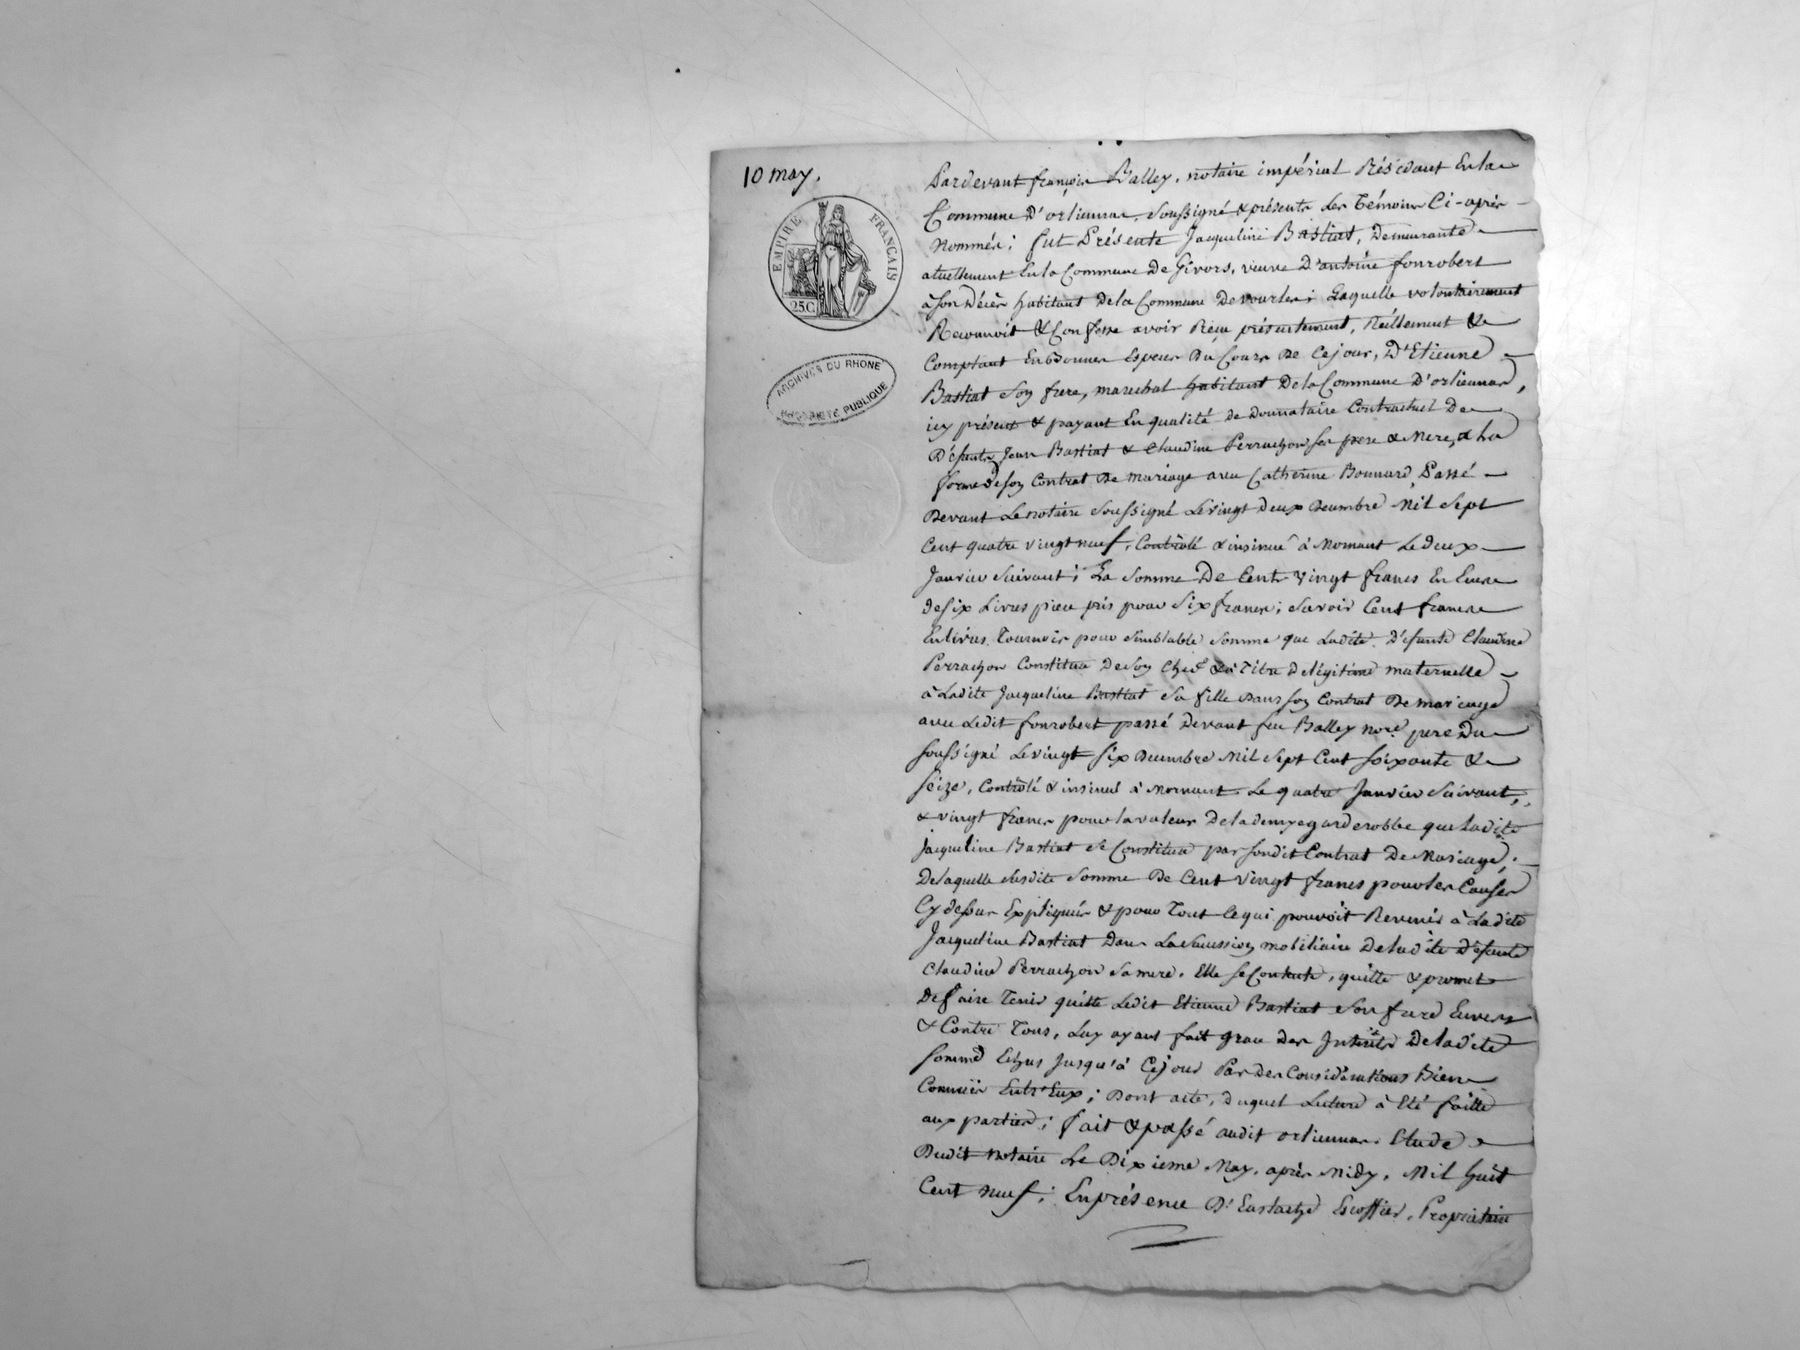 10 may.
EMPIRE FRANÇAIS
25C
ARCHIVES DU RHONE
PROPRIÉTÉ PUBLIQUE
Pardevant françois Balley, notaire impérial Résidant En la
Commune D'orlienas, soussigné & présents les Témoins Ci-après
Nommés; fut Présente Jacqueline Bastiat, Demeurante
atuellement En la Commune De Givors, veuve D'antoine fonrobert
à son Décès habitant De la Commune De vourles; Laquelle volontairement
Reconnoit & Confesse avoir Reçu présentement, Réellement &
Comptant En bonnes Especes Du Cours De Ce jour, D'Etienne
Bastiat Son frere, marechal habitant De la Commune D'orlienas,
icy présent & payant En qualité de Donnataire Contractuel De
Défunts Jean Bastiat & Claudine Perrachon ses pere & Mere, à la
forme de son Contrat De mariage avec Catherine Bonnard, Passé
Devant Le notaire Soussigné Le vingt deux Decembre Mil Sept
Cent quatre vingt neuf, Contrôlé & insinué à Mornant Le deux
Janvier Suivant; La Somme De Cent vingt francs En Ecus
de six Livres piece pris pour Six francs; savoir Cent francs
En livres Tournois pour semblable somme que Ladite Défunte Claudine
Perrachon Constitua De son Chef & à Titre De légitime maternelle
à Ladite Jacqueline Bastiat Sa fille Dans son Contrat De mariage
avec Ledit fonrobert passé Devant feu Balley nore pere Du
soussigné Le vingt six Decembre Mil Sept Cent soixante &
seize, Contrôlé & insinué à Mornant Le quatre Janvier Suivant,
& vingt francs pour la valeur De la demye garderobbe que Ladite
Jacqueline Bastiat se Constitua par sondit Contrat De Mariage;
De laquelle susdite Somme De Cent vingt francs pour les Causes
Cy dessus Expliquées & pour Tout Ce qui pouvoit Revenir à Ladite
Jacqueline Bastiat Dans La Succession mobiliaire De ladite Défunte
Claudine Perrachon Sa mere, Elle se Contente, quitte & promet
De faire Tenir quitte Ledit Etienne Bastiat son frere Envers
& Contre Tous, Luy ayant fait grace Des Intérêts De ladite
somme Echus Jusqu'à Ce jour Par Des Considérations Bien
Connües Entr'Eux; Dont acte, Duquel Lecture à Eté faitte
aux parties; fait & passé audit orlienas Etude
Dudit notaire Le Dixieme May, après Midy, Mil huit
Cent neuf; En présence D'Eustache Escoffier, Propriétaire